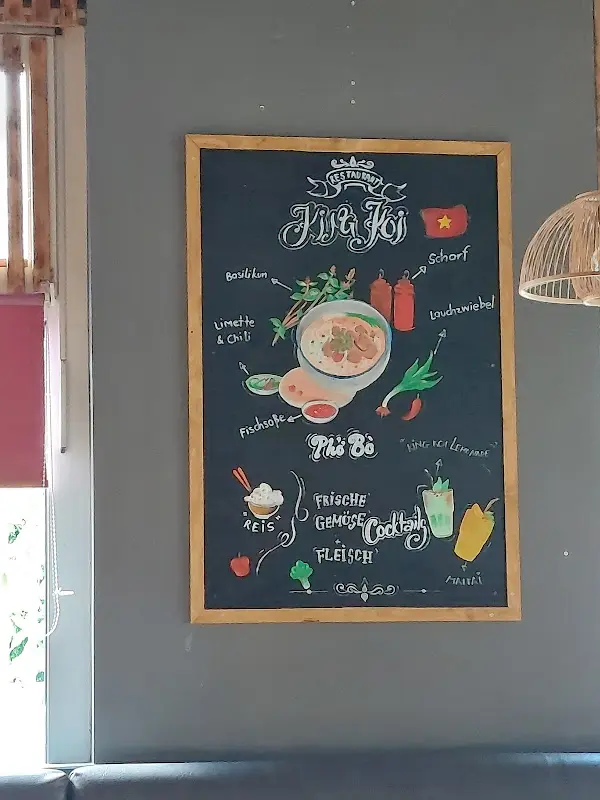 RESTAURANT
King Koi
Basilikum
Scharf
Limette
& Chili
Lauchzwiebel
Fischsoße
Phở Bò
"KING KOI LEMONADE"
"REIS"
FRISCHE
GEMÜSE
+
FLEISCH
Cocktails
MAITAI